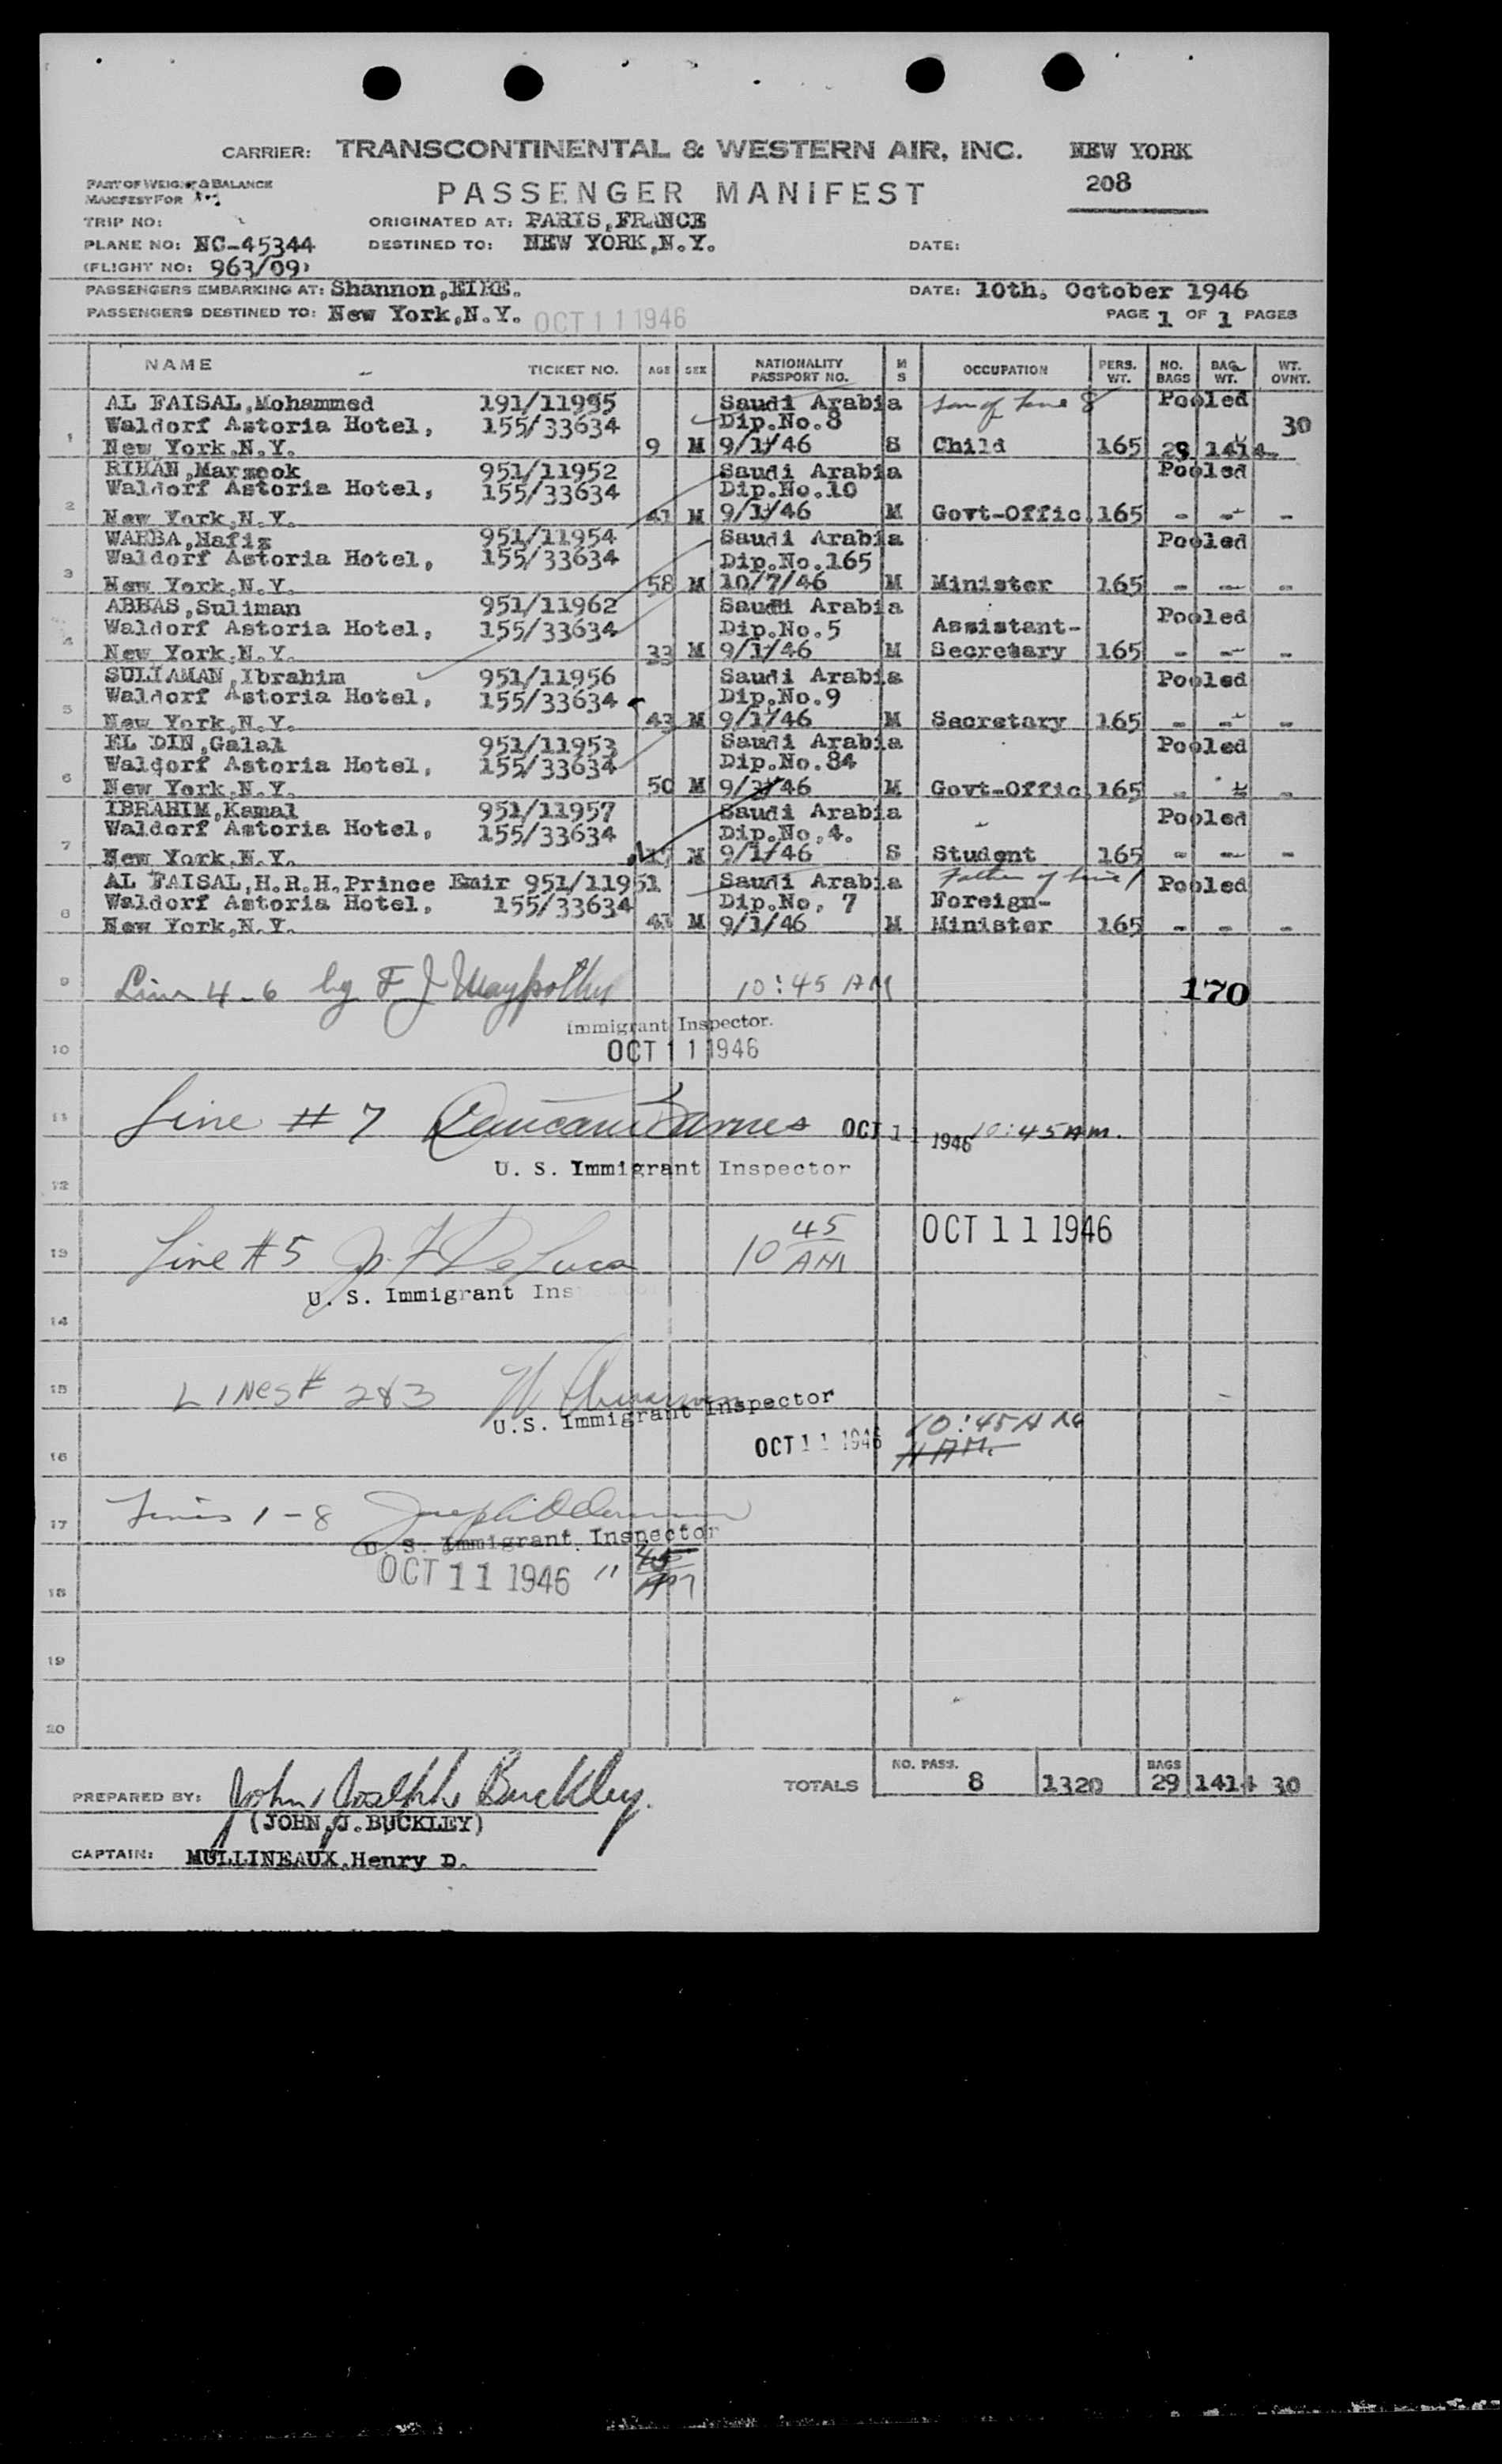 CARRIER: TRANSCONTINENTAL & WESTERN AIR, INC. NEW YORK
PART OF WEIGHT & BALANCE
MANIFEST FOR
PASSENGER MANIFEST 208
TRIP NO: ORIGINATED AT: PARIS, FRANCE
PLANE NO: NC-45344 DESTINED TO: NEW YORK, N.Y. DATE:
(FLIGHT NO: 963/09)
PASSENGERS EMBARKING AT: Shannon, EIRE. DATE: 10th. October 1946
PASSENGERS DESTINED TO: New York, N.Y. OCT 11 1946 PAGE 1 OF 1 PAGES
NAME TICKET NO. AGE SEX NATIONALITY PASSPORT NO. M S OCCUPATION PERS. WT. NO. BAGS BAG. WT. WT. OVNT.
AL FAISAL, Mohammed 191/11995 Saudi Arabia Son of line 8 Pooled
Waldorf Astoria Hotel, 155/33634 Dip.No.8 30
1 New York, N.Y. 9 M 9/1/46 S Child 165 29 1414
RIHAN, Marzook 951/11952 Saudi Arabia Pooled
Waldorf Astoria Hotel, 155/33634 Dip.No.10
2 New York, N.Y. 41 M 9/1/46 M Govt-Offic. 165 - - -
WAHBA, Hafiz 951/11954 Saudi Arabia Pooled
Waldorf Astoria Hotel, 155/33634 Dip.No.165
3 New York, N.Y. 58 M 10/7/46 M Minister 165 - - -
ABBAS, Suliman 951/11962 Saudi Arabia Pooled
Waldorf Astoria Hotel, 155/33634 Dip.No.5 Assistant-
4 New York, N.Y. 33 M 9/1/46 M Secretary 165 - - -
SULIAMAN, Ibrahim 951/11956 Saudi Arabia Pooled
Waldorf Astoria Hotel, 155/33634 Dip.No.9
5 New York, N.Y. 43 M 9/1/46 M Secretary 165 - - -
EL DIN, Galal 951/11953 Saudi Arabia Pooled
Waldorf Astoria Hotel, 155/33634 Dip.No.84
6 New York, N.Y. 50 M 46 M Govt-Offic. 165 - - -
IBRAHIM, Kamal 951/11957 Saudi Arabia Pooled
Waldorf Astoria Hotel, 155/33634 Dip.No.4.
7 New York, N.Y. M 9/1/46 S Student 165 - - -
AL FAISAL, H.R.H. Prince Emir 951/11951 Saudi Arabia Father of line 1 Pooled
Waldorf Astoria Hotel, 155/33634 Dip.No. 7 Foreign-
8 New York, N.Y. 41 M 9/1/46 M Minister 165 - - -
9 Line 4-6 by F J 10:45 AM 170
Immigrant Inspector.
10 OCT 11 1946
11 Line # 7 Barnes OCT 11 1946 10:45 AM.
U. S. Immigrant Inspector
12
13 Line # 5 De Luca 10 45 AM OCT 11 1946
U. S. Immigrant Ins
14
15 LINES # 2 & 3
U. S. Immigrant Inspector
16 OCT 11 1946 10:45 AM
17 Lines 1 - 8 Joseph
U. S. Immigrant Inspector
18 OCT 11 1946 11 45 AM
19
20
PREPARED BY: John Joseph Buckley. TOTALS NO. PASS. 8 1320 BAGS 29 1414 30
(JOHN J. BUCKLEY)
CAPTAIN: MULLINEAUX, Henry D.